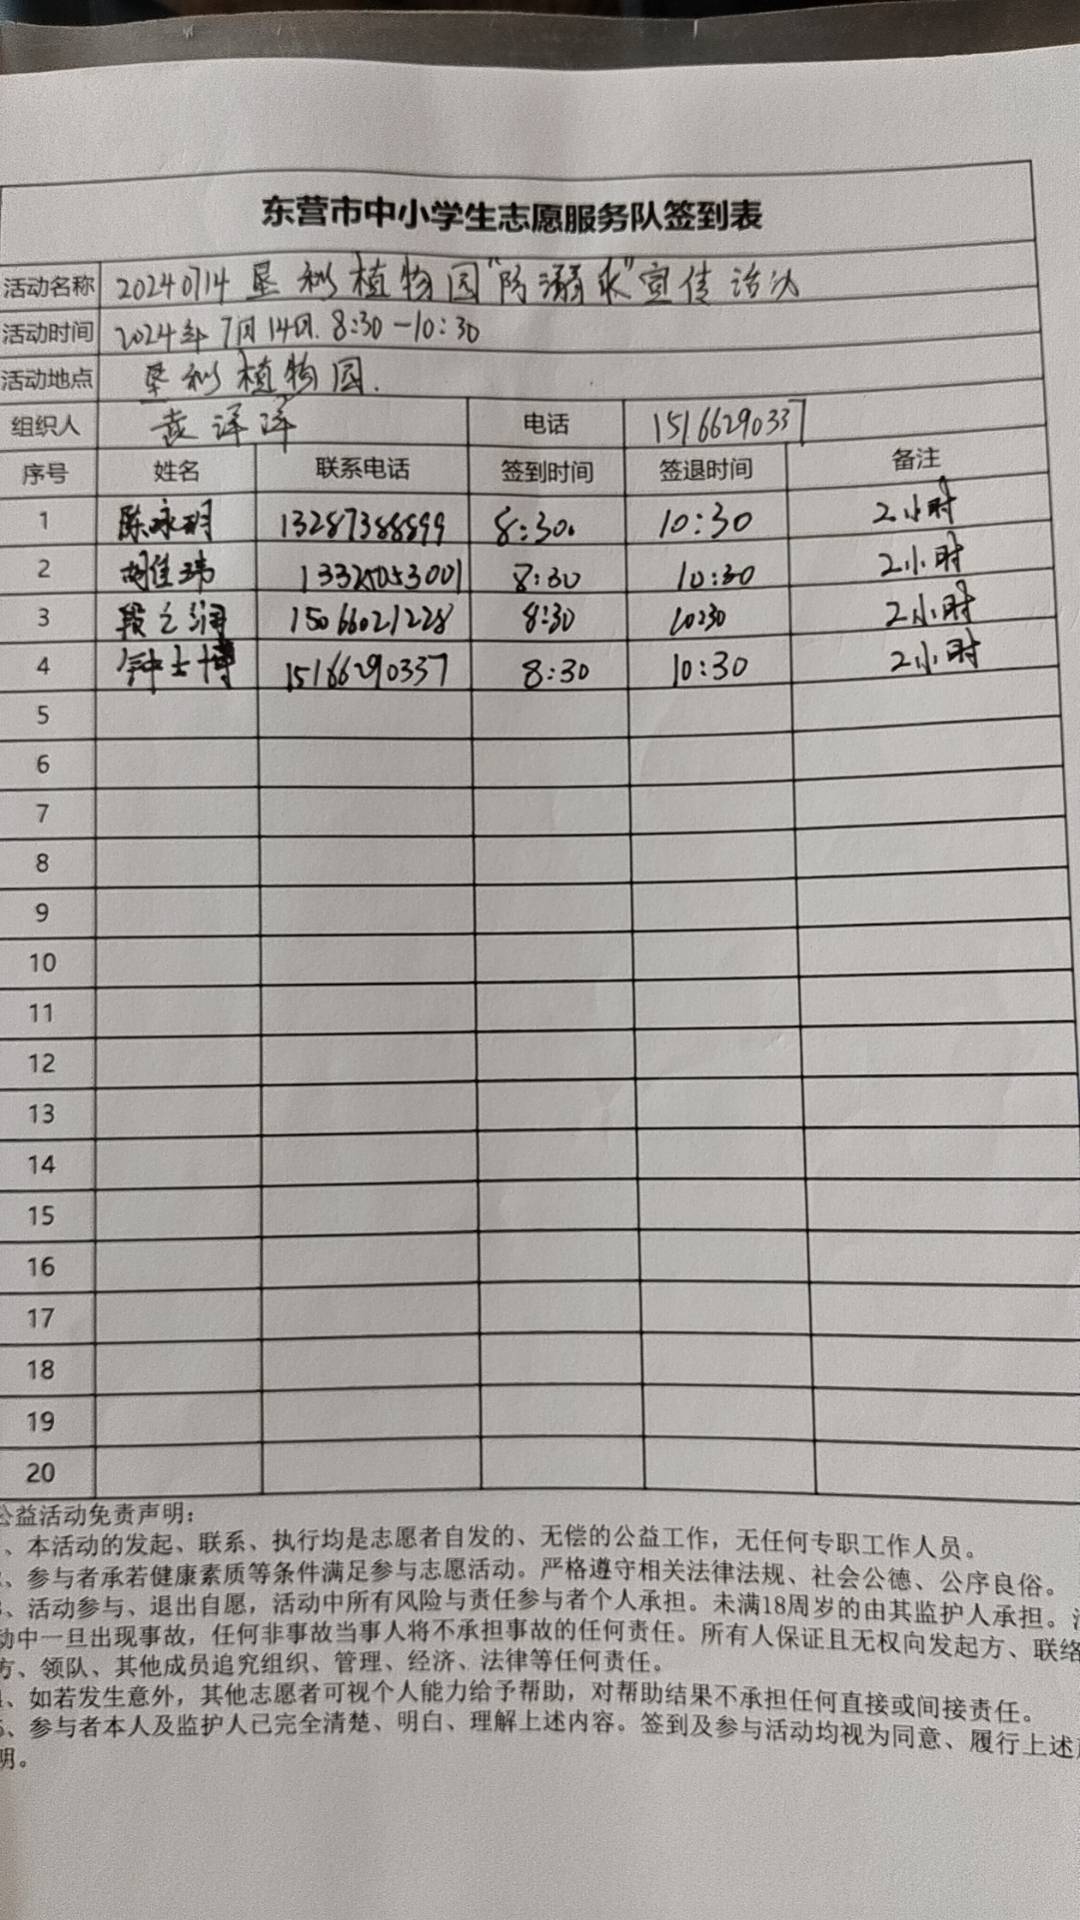 东营市中小学生志愿服务队签到表
活动名称 20240714垦利植物园"防溺水"宣传活动
活动时间 2024年7月14日.8:30-10:30
活动地点 垦利植物园.
组织人 袁洋洋 电话 15166290337
序号 姓名 联系电话 签到时间 签退时间 备注
1 陈咏玥 13287388899 8:30. 10:30 2小时
2 胡佳玮 13325053001 8:30 10:30 2小时
3 段之润 15066021228 8:30 10:30 2小时
4 钟士博 15166290337 8:30 10:30 2小时
5
6
7
8
9
10
11
12
13
14
15
16
17
18
19
20
公益活动免责声明：
、本活动的发起、联系、执行均是志愿者自发的、无偿的公益工作，无任何专职工作人员。
、参与者承若健康素质等条件满足参与志愿活动。严格遵守相关法律法规、社会公德、公序良俗。
、活动参与、退出自愿，活动中所有风险与责任参与者个人承担。未满18周岁的由其监护人承担。
动中一旦出现事故，任何非事故当事人将不承担事故的任何责任。所有人保证且无权向发起方、联络
方、领队、其他成员追究组织、管理、经济、法律等任何责任。
、如若发生意外，其他志愿者可视个人能力给予帮助，对帮助结果不承担任何直接或间接责任。
、参与者本人及监护人已完全清楚、明白、理解上述内容。签到及参与活动均视为同意、履行上述
明。